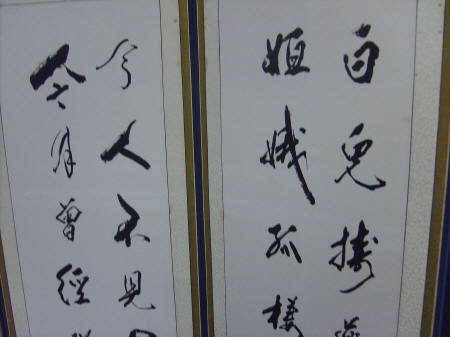 白兔擣
姮娥孤棲
今人不見
今月曾經